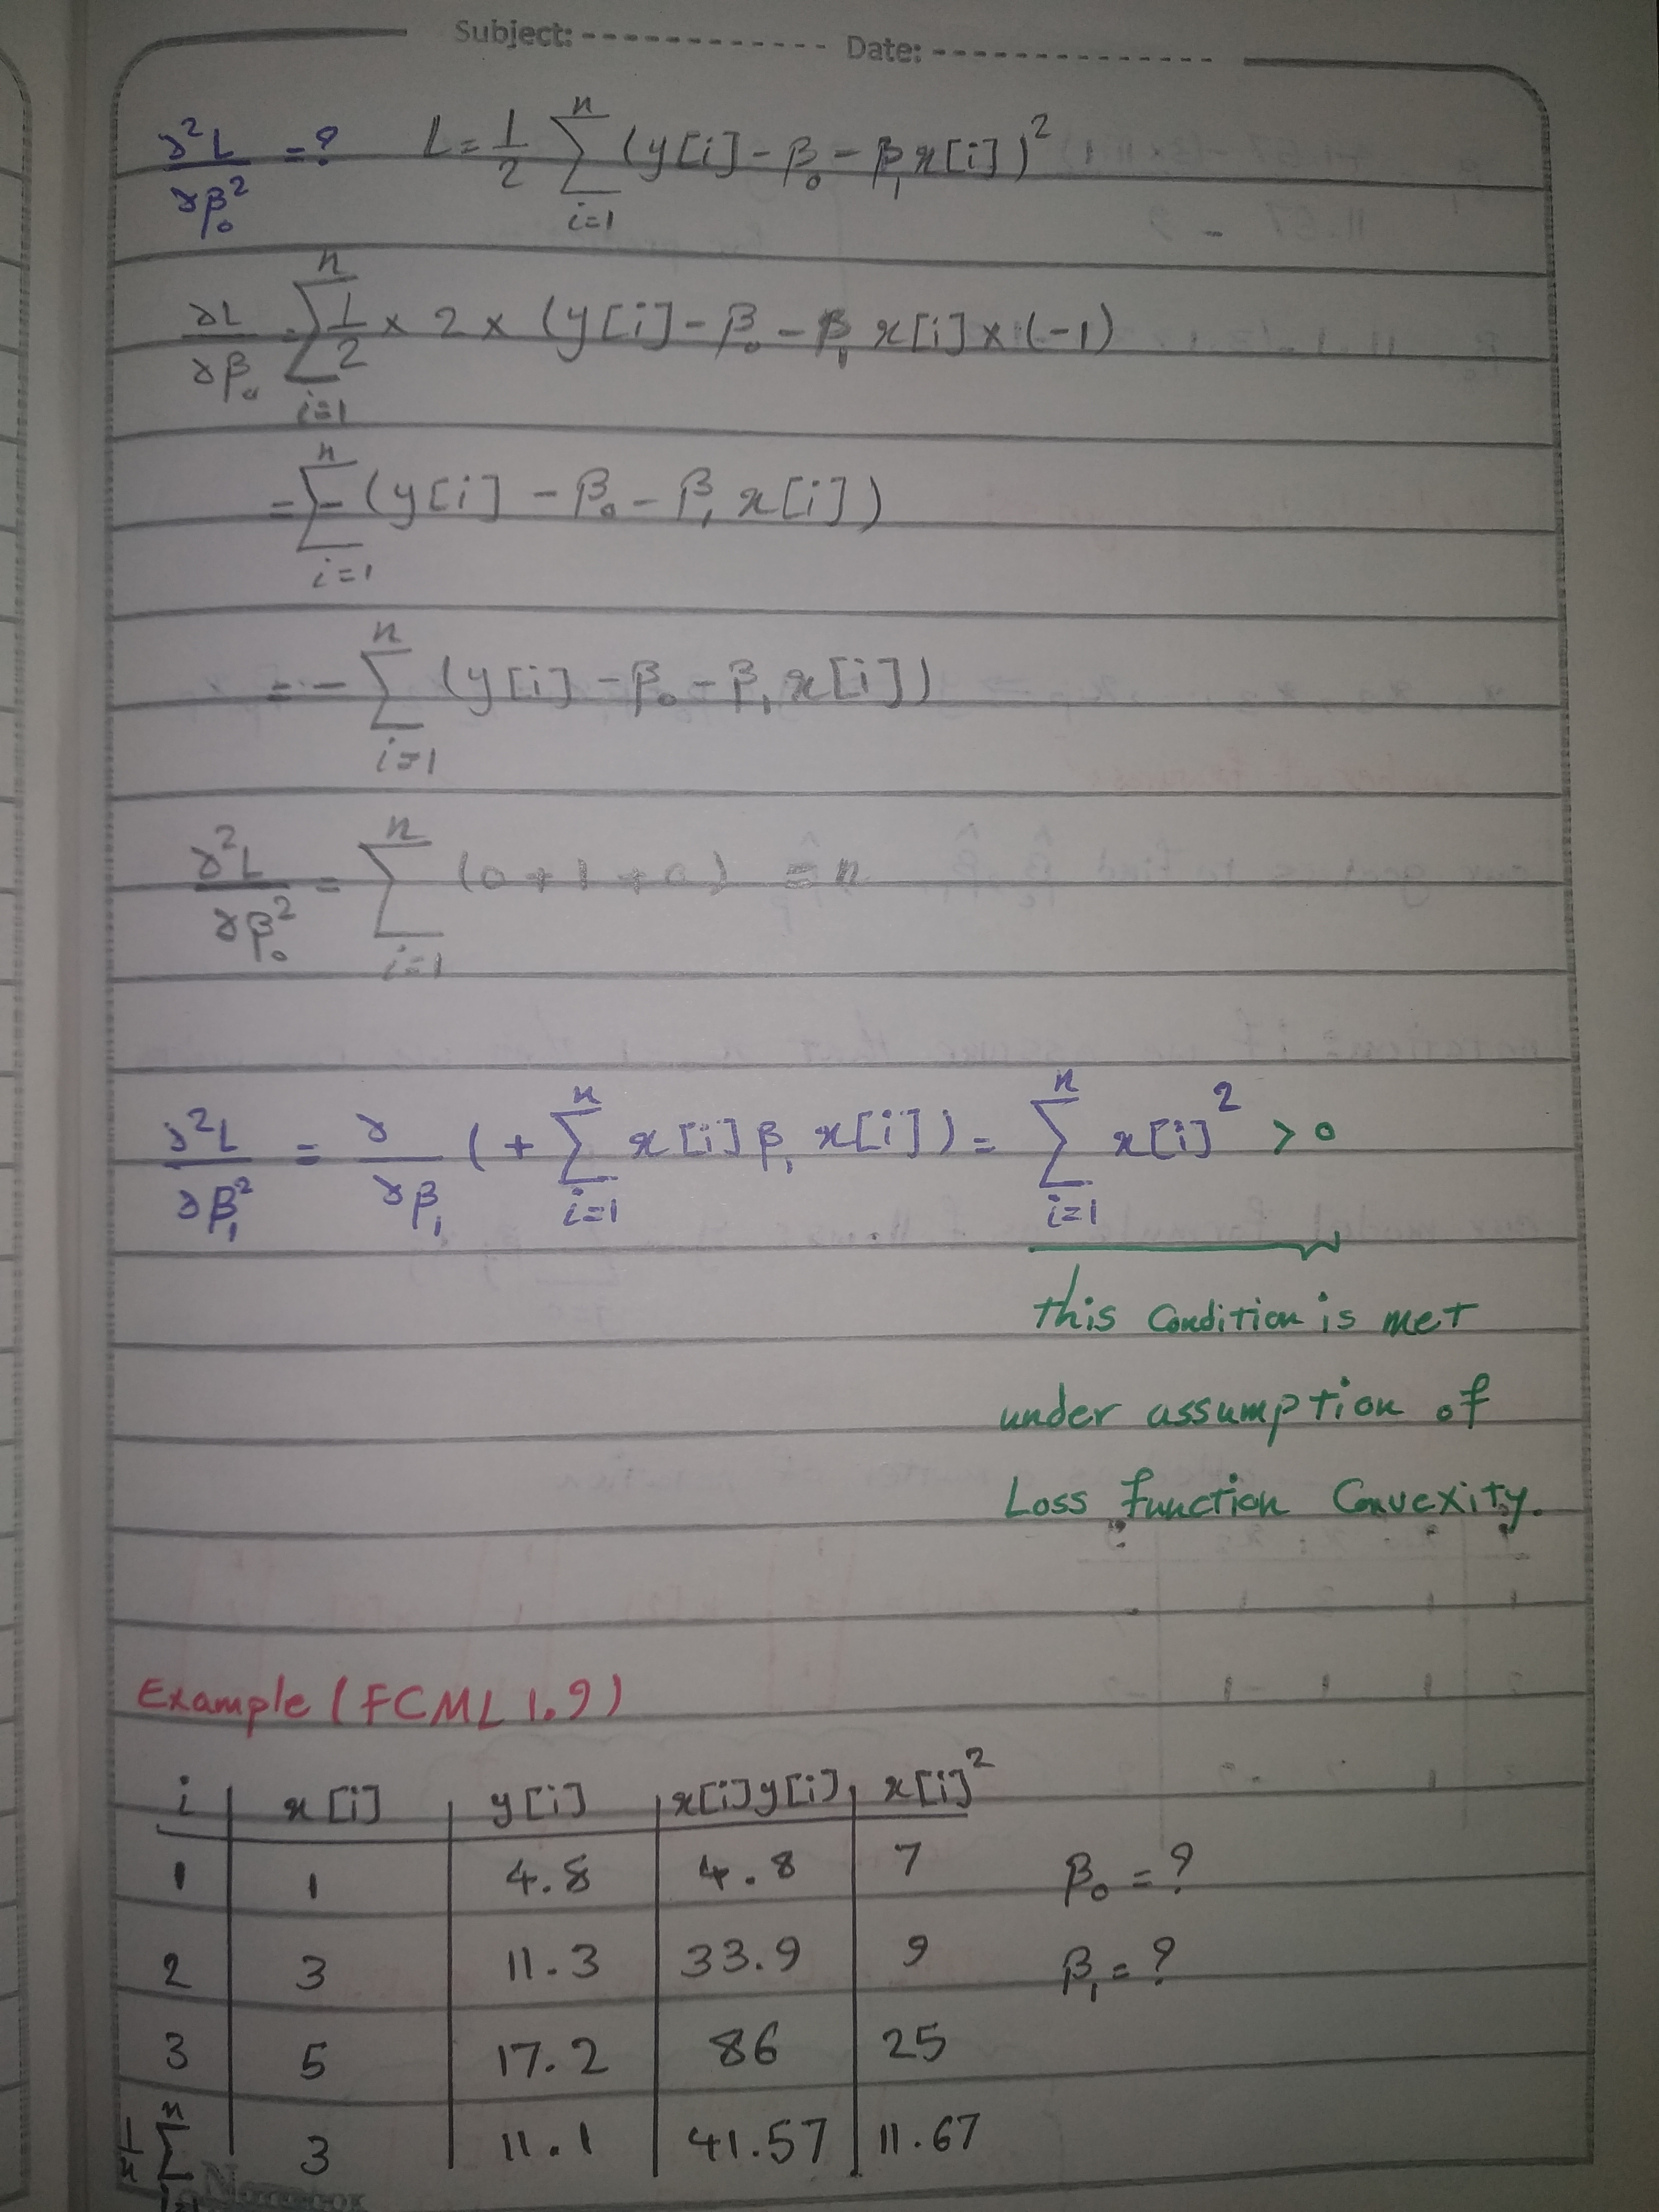 Subject: ------------- Date: --------------
∂²L/∂β₀² = ? L = 1/2 ∑_{i=1}^{n} (y[i] - β₀ - β₁x[i])²
∂L/∂β₀ = ∑_{i=1}^{n} 1/2 × 2 × (y[i] - β₀ - β₁ x[i] × (-1)
= ∑_{i=1}^{n} - (y[i] - β₀ - β₁ x[i])
= - ∑_{i=1}^{n} (y[i] - β₀ - β₁ x[i])
∂²L/∂β₀² = ∑_{i=1}^{n} (0 + 1 + 0) = n
∂²L/∂β₁² = ∂/∂β₁ (+ ∑_{i=1}^{n} x[i] β₁ x[i]) = ∑_{i=1}^{n} x[i]² > 0
this Condition is met
under assumption of
Loss function Convexity.
Example (FCML 1.9)
i | x[i] | y[i] | x[i]y[i] | x[i]²
1 | 1 | 4.8 | 4.8 | 7 β₀ = ?
2 | 3 | 11.3 | 33.9 | 9 β₁ = ?
3 | 5 | 17.2 | 86 | 25
1/n ∑_{i=1}^{n} | 3 | 11.1 | 41.57 | 11.67